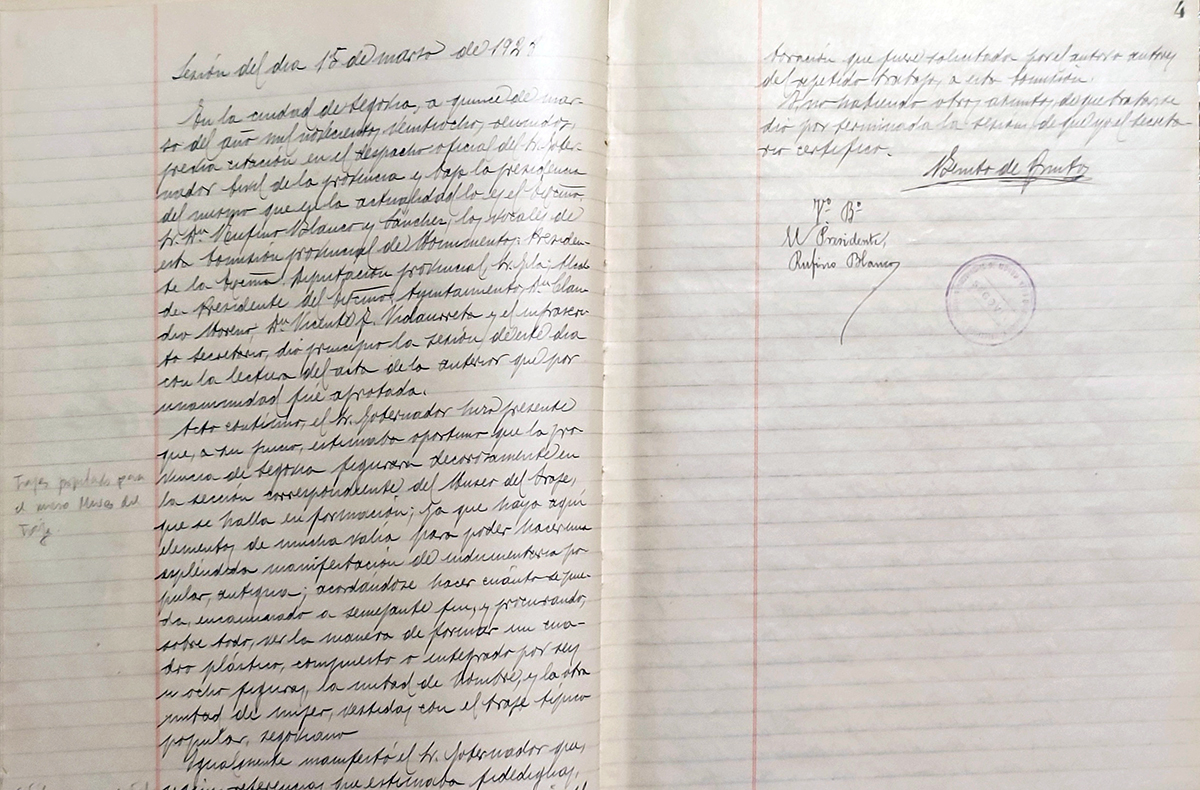 Sesión del dia 15 de marzo de 1928
En la ciudad de Segovia, a quince de mar-
zo del año mil novecientos veintiocho, reunidos,
previa citación en el despacho oficial del Sr. Gober-
nador Civil de la provincia y bajo la presidencia
del mismo que en la actualidad lo es el Excmo.
Sr. Dn. Rufino Blanco y Sánchez, los vocales de
esta Comisión provincial de Monumentos: Presiden-
te de la Excma. Diputación provincial, Sr. Gila; Alcal-
de-Presidente del Excmo. Ayuntamiento, Dn. Clau-
dio Moreno, Dn. Vicente F. Vidaurreta y el infrascri-
to Secretario, dió principio la sesión de este dia
con la lectura del acta de la anterior que por
unanimidad fué aprobada.
Acto contínuo, el Sr. Gobernador hizo presente
que, a su juicio, estimaba oportuno que la pro-
vincia de Segovia figurara decorosamente en
la sección correspondiente del Museo del traje,
que se halla en formación; ya que haya aquí
elementos de mucha valía para poder hacer una
espléndida manifestación de indumentaria po-
pular, antigua; acordándose hacer cuánto se pue-
da, encaminado a semejante fin, y procurando,
sobre todo, ver la manera de formar un cua-
dro plástico, compuesto o integrado por seis
u ocho figuras, la mitad de hombre, y la otra
mitad de mujer, vestidas con el traje típico
popular, segoviano
Igualmente manifestó el Sr. Gobernador que,
según referencias que estimaba fidedignas,
Trajes populares para
el nuevo Museo del
Traje.
4
toración que fuese solicitada por el autor o autores
del repetido trabajo, a esta Comisión.
Y no habiendo otros asuntos de que tratar, se
dió por terminada la sesión de que yo el secreta-
rio certifico.
Benito de Frutos
Vº Bº
El Presidente,
Rufino Blanco